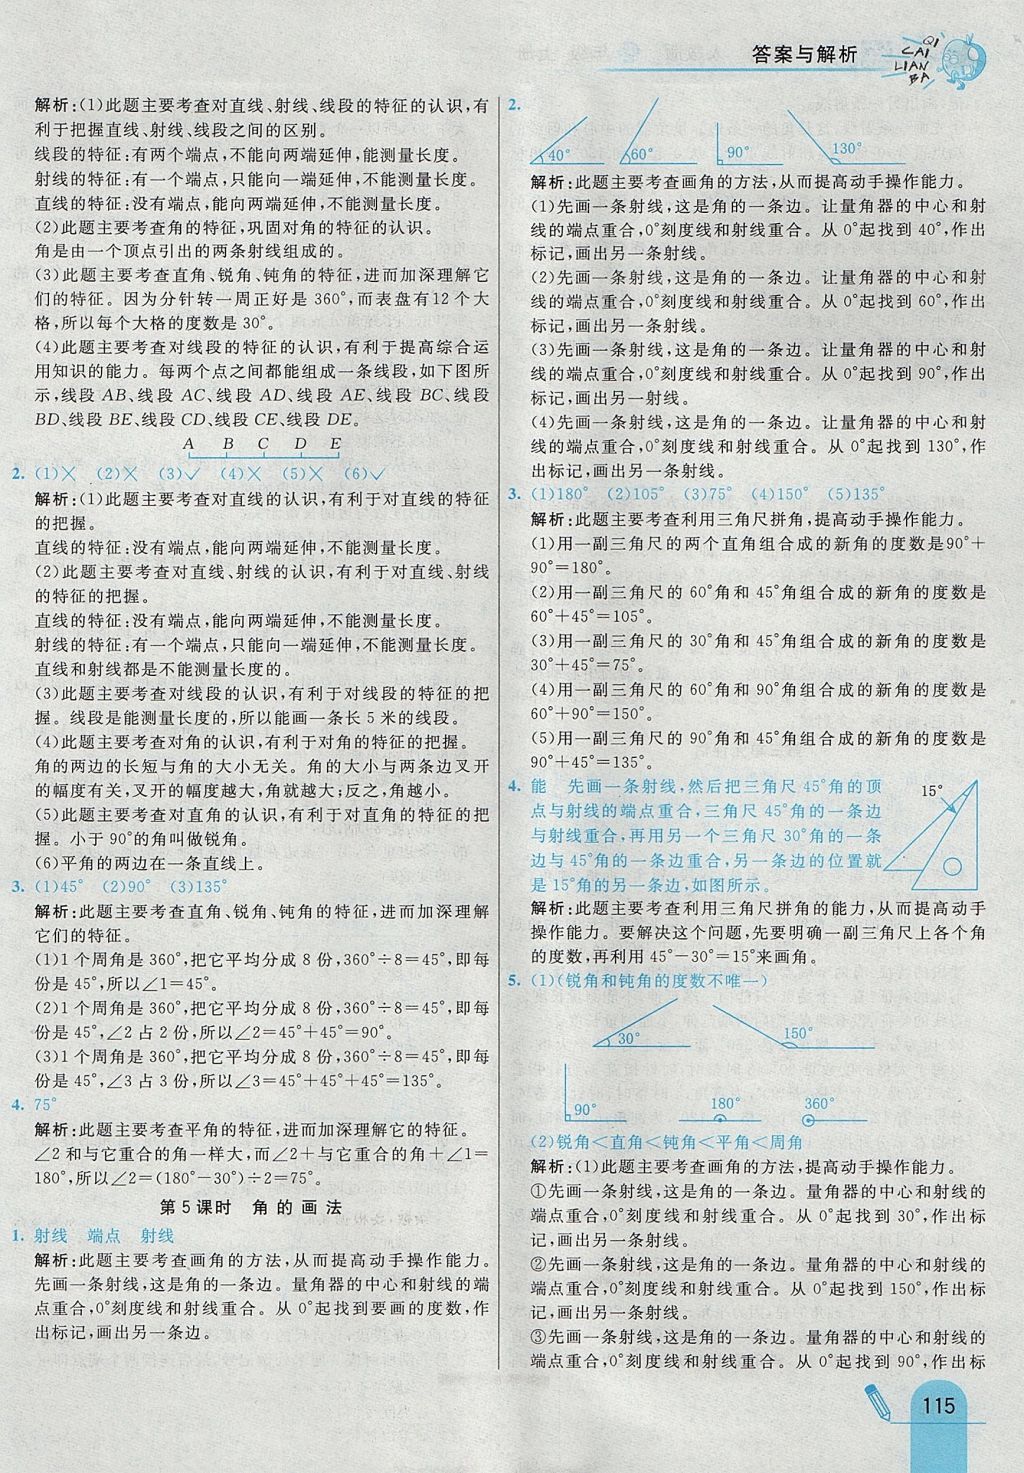 答案与解析
QI
CAI
LIAN
BA
解析:(1)此题主要考查对直线、射线、线段的特征的认识,有
利于把握直线、射线、线段之间的区别。
线段的特征:有两个端点,不能向两端延伸,能测量长度。
射线的特征:有一个端点,只能向一端延伸,不能测量长度。
直线的特征:没有端点,能向两端延伸,不能测量长度。
(2)此题主要考查角的特征,巩固对角的特征的认识。
角是由一个顶点引出的两条射线组成的。
(3)此题主要考查直角、锐角、钝角的特征,进而加深理解它
们的特征。因为分针转一周正好是360°,而表盘有12个大
格,所以每个大格的度数是30°。
(4)此题主要考查对线段的特征的认识,有利于提高综合运
用知识的能力。每两个点之间都能组成一条线段,如下图所
示,线段AB、线段AC、线段AD、线段AE、线段BC、线段
BD、线段BE、线段CD、线段CE、线段DE。
A B C D E
2. (1)× (2)× (3)✓ (4)× (5)× (6)✓
解析:(1)此题主要考查对直线的认识,有利于对直线的特征
的把握。
直线的特征:没有端点,能向两端延伸,不能测量长度。
(2)此题主要考查对直线、射线的认识,有利于对直线、射线
的特征的把握。
直线的特征:没有端点,能向两端延伸,不能测量长度。
射线的特征:有一个端点,只能向一端延伸,不能测量长度。
直线和射线都是不能测量长度的。
(3)此题主要考查对线段的认识,有利于对线段的特征的把
握。线段是能测量长度的,所以能画一条长5米的线段。
(4)此题主要考查对角的认识,有利于对角的特征的把握。
角的两边的长短与角的大小无关。角的大小与两条边叉开
的幅度有关,叉开的幅度越大,角就越大;反之,角越小。
(5)此题主要考查对直角的认识,有利于对直角的特征的把
握。小于90°的角叫做锐角。
(6)平角的两边在一条直线上。
3. (1)45° (2)90° (3)135°
解析:此题主要考查直角、锐角、钝角的特征,进而加深理解
它们的特征。
(1)1个周角是360°,把它平均分成8份,360°÷8=45°,即每
份是45°,所以∠1=45°。
(2)1个周角是360°,把它平均分成8份,360°÷8=45°,即每
份是45°,∠2占2份,所以∠2=45°+45°=90°。
(3)1个周角是360°,把它平均分成8份,360°÷8=45°,即每
份是45°,∠3占3份,所以∠3=45°+45°+45°=135°。
4. 75°
解析:此题主要考查平角的特征,进而加深理解它的特征。
∠2和与它重合的角一样大,而∠2+与它重合的角+∠1=
180°,所以∠2=(180°-30°)÷2=75°。
第5课时 角的画法
1. 射线 端点 射线
解析:此题主要考查画角的方法,从而提高动手操作能力。
先画一条射线,这是角的一条边。量角器的中心和射线的端
点重合,0°刻度线和射线重合。从0°起找到要画的度数,作
出标记,画出另一条边。
2.
40° 60° 90° 130°
解析:此题主要考查画角的方法,从而提高动手操作能力。
(1)先画一条射线,这是角的一条边。让量角器的中心和射
线的端点重合,0°刻度线和射线重合。从0°起找到40°,作出
标记,画出另一条射线。
(2)先画一条射线,这是角的一条边。让量角器的中心和射
线的端点重合,0°刻度线和射线重合。从0°起找到60°,作出
标记,画出另一条射线。
(3)先画一条射线,这是角的一条边。让量角器的中心和射
线的端点重合,0°刻度线和射线重合。从0°起找到90°,作出
标记,画出另一射线。
(4)先画一条射线,这是角的一条边。让量角器的中心和射
线的端点重合,0°刻度线和射线重合。从0°起找到130°,作
出标记,画出另一条射线。
3. (1)180° (2)105° (3)75° (4)150° (5)135°
解析:此题主要考查利用三角尺拼角,提高动手操作能力。
(1)用一副三角尺的两个直角组合成的新角的度数是90°+
90°=180°。
(2)用一副三角尺的60°角和45°角组合成的新角的度数是
60°+45°=105°。
(3)用一副三角尺的30°角和45°角组合成的新角的度数是
30°+45°=75°。
(4)用一副三角尺的60°角和90°角组合成的新角的度数是
60°+90°=150°。
(5)用一副三角尺的90°角和45°角组合成的新角的度数是
90°+45°=135°。
4. 能 先画一条射线,然后把三角尺45°角的顶
点与射线的端点重合,三角尺45°角的一条边
与射线重合,再用另一个三角尺30°角的一条
边与45°角的一条边重合,另一条边的位置就
是15°角的另一条边,如图所示。
15°
解析:此题主要考查利用三角尺拼角的能力,从而提高动手
操作能力。要解决这个问题,先要明确一副三角尺上各个角
的度数,再利用45°-30°=15°来画角。
5. (1)(锐角和钝角的度数不唯一)
30° 150°
90° 180° 360°
(2)锐角<直角<钝角<平角<周角
解析:(1)此题主要考查画角的方法,提高动手操作能力。
①先画一条射线,这是角的一条边。量角器的中心和射线的
端点重合,0°刻度线和射线重合。从0°起找到30°,作出标
记,画出另一条射线。
②先画一条射线,这是角的一条边。量角器的中心和射线的
端点重合,0°刻度线和射线重合。从0°起找到150°,作出标
记,画出另一条射线。
③先画一条射线,这是角的一条边。量角器的中心和射线的
端点重合,0°刻度线和射线重合。从0°起找到90°,作出标
115